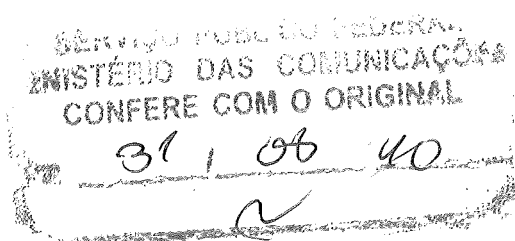 SERVIÇO PÚBLICO FEDERAL
MINISTÉRIO DAS COMUNICAÇÕES
CONFERE COM O ORIGINAL
31 / 08